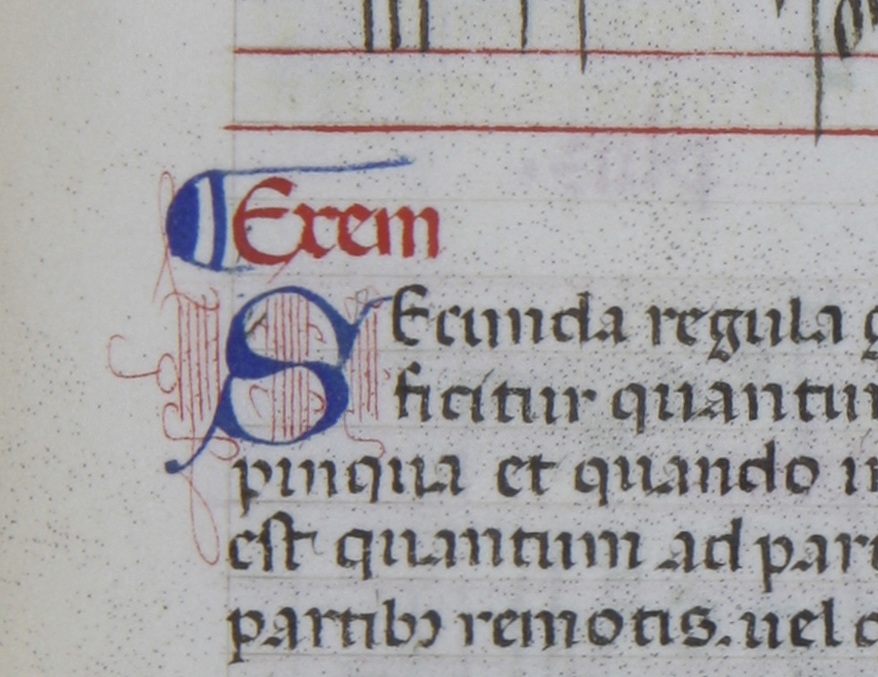 Exem
SEcunda regula
ficitur
pinqua et quando
est quantum ad
partibꝫ remotis. uel